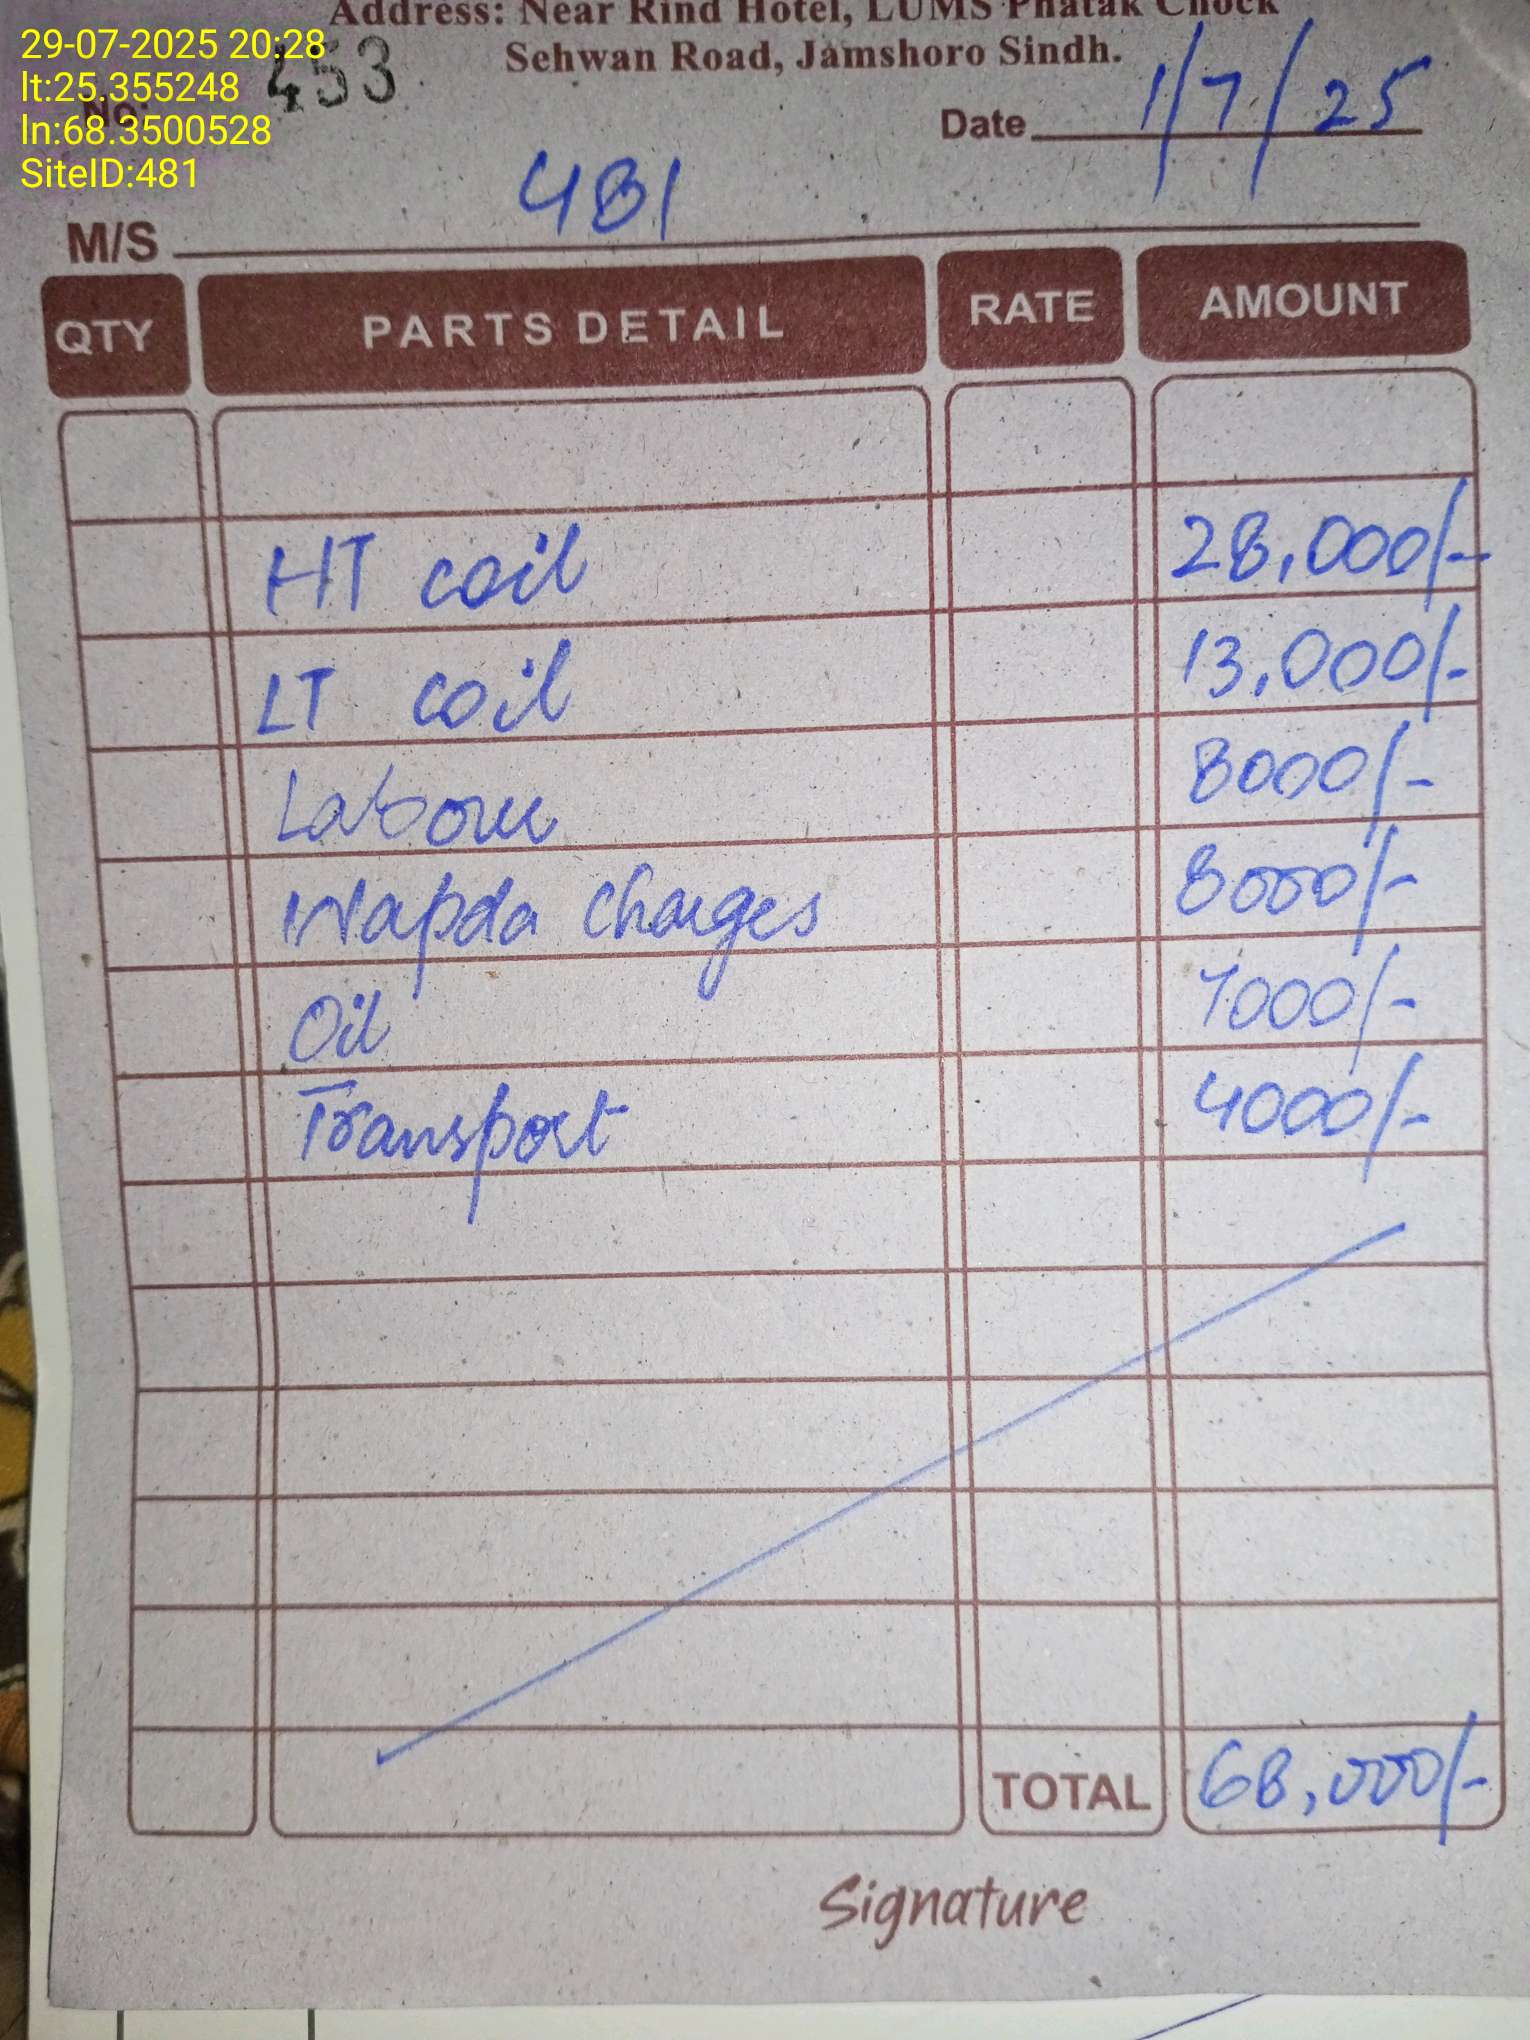 Address: Near Rind Hotel, LUMS Phatak Chock
Sehwan Road, Jamshoro Sindh.
29-07-2025 20:28
lt:25.355248
ln:68.3500528
SiteID:481
No: 453
Date 1/7/25
M/S 481
QTY PARTS DETAIL RATE AMOUNT
HT coil 28,000/-
LT coil 13,000/-
Labour 8000/-
Wapda charges 8000/-
Oil 7000/-
Transport 4000/-
TOTAL 68,000/-
Signature